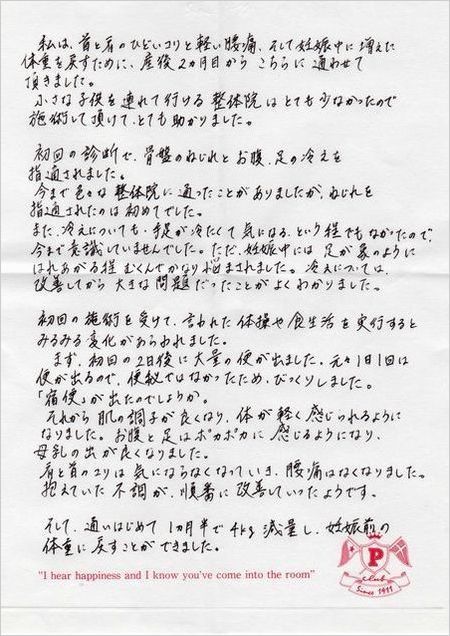 私は、首と肩のひどいコリと軽い腰痛、そして妊娠中に増えた
体重を戻すために、産後2ヵ月目から こちらに 通わせて
頂きました。
小さな子供を連れて行ける 整体院 は とても 少なかったので
施術して頂けて、とても 助かりました。
初回の診断で、骨盤のねじれと お腹、足の冷えを
指適されました。
今まで色々な 整体院に通ったことがありましたが、ねじれを
指適されたのは 初めてでした。
また、冷えについても、手足が冷たくて 気になる、という程でもなかったので、
今まで意識していませんでした。ただ、妊娠中には 足が象のように
はれあがる程 むくんでかなり悩まされました。冷えについては、
改善してから 大きな問題だったことが よくわかりました。
初回の施術を受けて、言われた 体操や食生活を 実行すると
みるみる変化があらわれました。
まず、初回の2日後に大量の便が出ました。元々1日1回は
便が出るので、便秘ではなかったため、びっくりしました。
「宿便」が出たのでしょうか。
それから 肌の調子が良くなり、体が 軽く感じられるように
なりました。お腹と足はポカポカに 感じるようになり、
母乳の出が良くなりました。
肩と首のコリは 気にならなくなっていき、腰痛はなくなりました。
抱えていた 不調が、順番に 改善していったようです。
そして、通いはじめて 1ヵ月半で 4kg 減量し、妊娠前の
体重に戻すことが できました。
"I hear happiness and I know you've come into the room"
P
club
Since 1911